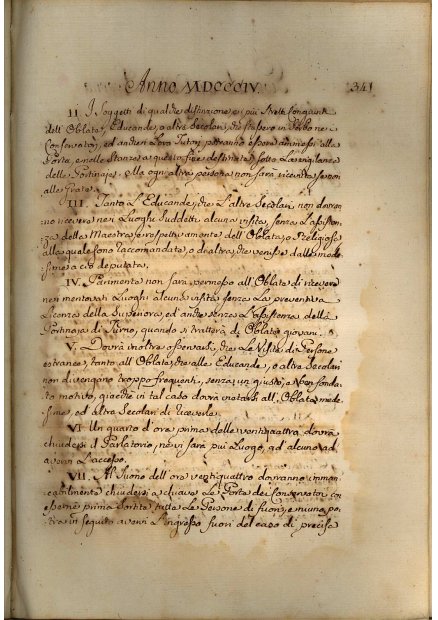 Anno MDCCCIV. 341
II. I Soggetti di qualche distinzione, e i più stretti Congiunti
dell'Oblate, Educande, o altre Secolari, che stassero in Serbo ne
Conservatorj, ed anche i Loro Tutori potranno essere ammessi alla
Porta, e nelle Stanze a questo fine destinate sotto La vigilanza
delle Portinaje. Ogni altra persona non sarà ricevuta se non
alle Grate.
III. Tanto L'Educande, che L'altre Secolari non dovran-
no ricevere nei Luoghi suddetti alcuna visita, senza L'assisten-
za della Maestra, o rispettivamente dell'Oblata, o Religiosa
alla quale sono raccomandate, o da altra, che venisse dalle mede-
sime a ciò deputata.
IV. Parimente non sarà permesso all'Oblate di ricevere
nei mentovati Luoghi alcuna visita senza La preventiva
Licenza della Superiora, ed anche senza L'assistenza della
Portinaja di Turno, quando si tratterà di Oblate giovani.
V. Dovrà inoltre osservarsi, che Le Visite di Persone
estranee, tanto all'Oblate, che alle Educande, o altre Secolari
non divengano troppo frequenti, senza un giusto, e ben fonda-
to motivo, giacchè in tal caso dovrà vietarsi all'Oblate mede-
sime, ed altre Secolari di riceverle.
VI. Un quarto d'ora prima delle ventiquattro dovrà
chiudersi il Parlatorio, nè vi sarà più Luogo, ad alcuno ad
avervi L'accesso.
VII. Al suono dell'ora ventiquattro dovranno imman-
cabilmente chiudersi a chiave Le Porte dei Conservatorj con
esserne prima sortite tutte Le Persone di fuori, e niuno po-
trà in seguito avervi L'ingresso fuori del caso di precisa